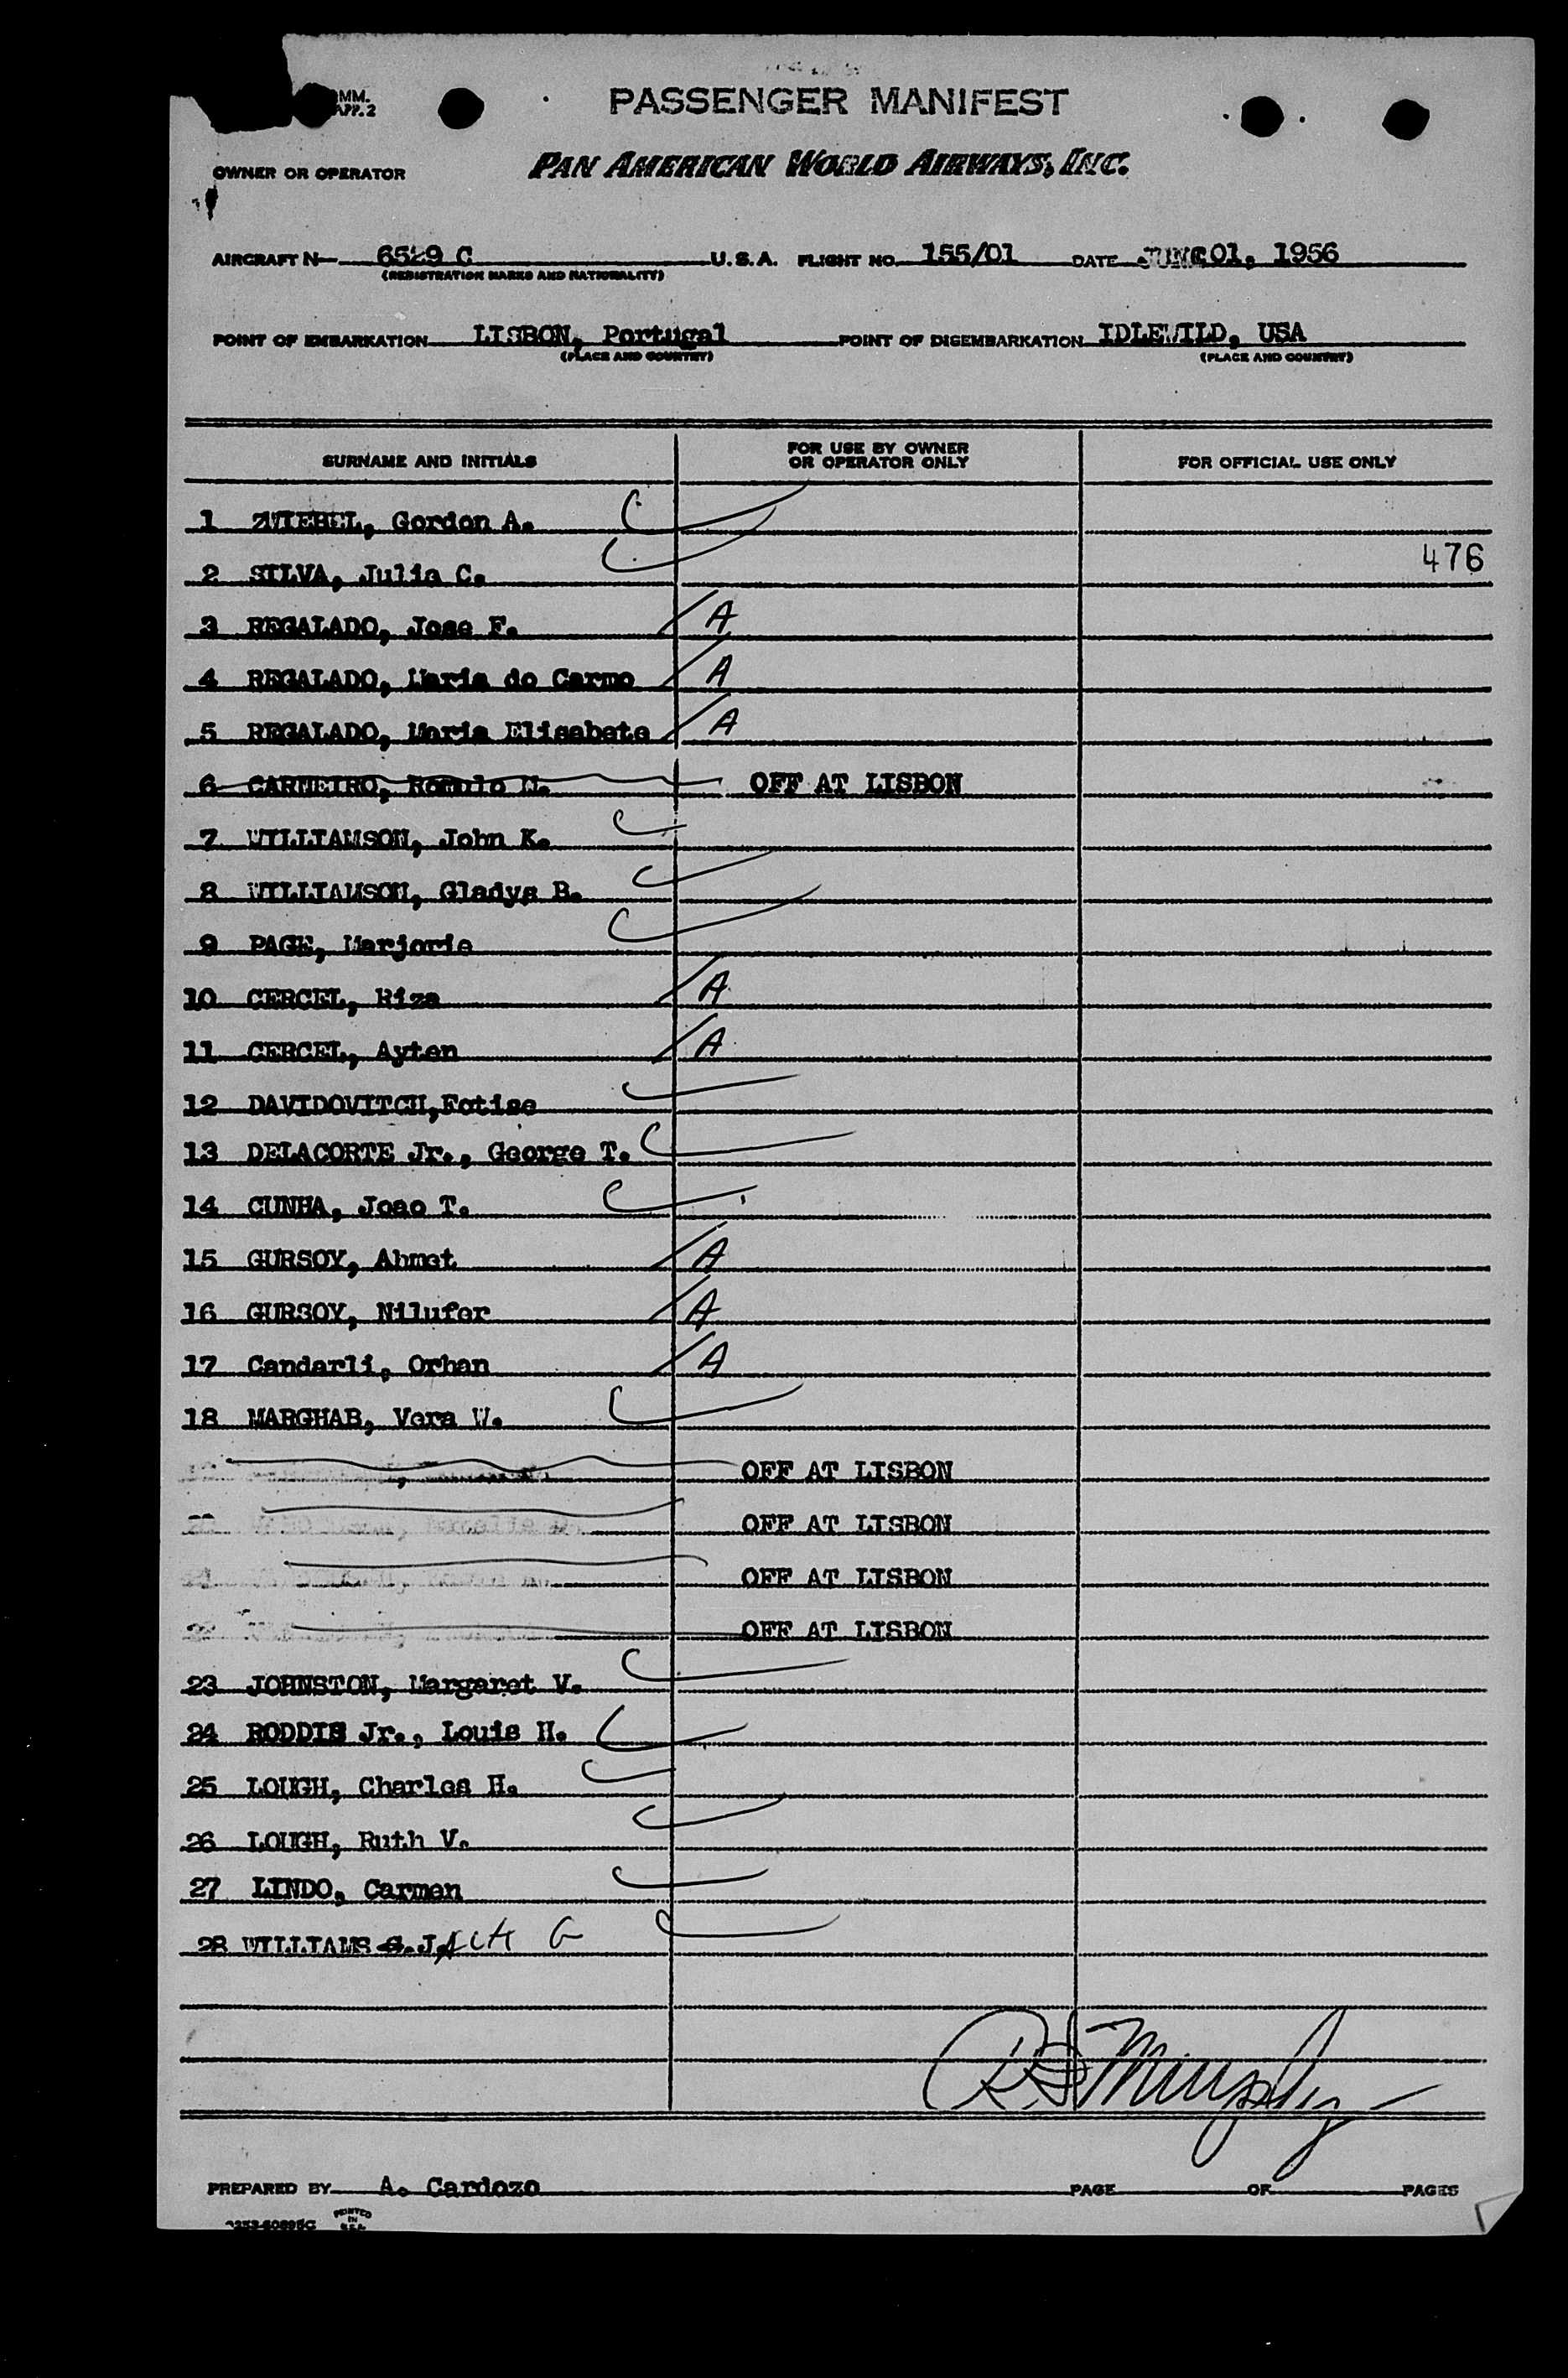 OMM.
APP. 2
PASSENGER MANIFEST
OWNER OR OPERATOR PAN AMERICAN WORLD AIRWAYS, INC.
AIRCRAFT N 6529 C U.S.A. FLIGHT NO. 155/01 DATE JUNE 01, 1956
(REGISTRATION MARKS AND NATIONALITY)
POINT OF EMBARKATION LISBON, Portugal POINT OF DISEMBARKATION IDLEWILD, USA
(PLACE AND COUNTRY) (PLACE AND COUNTRY)
SURNAME AND INITIALS FOR USE BY OWNER OR OPERATOR ONLY FOR OFFICIAL USE ONLY
1 ZWIEBEL, Gordon A.
2 SILVA, Julia C. 476
3 REGALADO, Jose F. A
4 REGALADO, Maria do Carmo A
5 REGALADO, Maria Elisabete A
6 CARNEIRO, Romulo M. OFF AT LISBON
7 WILLIAMSON, John K.
8 WILLIAMSON, Gladys B.
9 PAGE, Marjorie
10 CERCEL, Riza A
11 CERCEL, Ayten A
12 DAVIDOVITCH, Fotise
13 DELACORTE Jr., George T.
14 CUNHA, Joao T.
15 GURSOY, Ahmet A
16 GURSOY, Nilufer A
17 Candarli, Orhan A
18 MARGHAB, Vera W.
OFF AT LISBON
OFF AT LISBON
OFF AT LISBON
OFF AT LISBON
23 JOHNSTON, Margaret V.
24 RODDIS Jr., Louis H.
25 LOUGH, Charles H.
26 LOUGH, Ruth V.
27 LINDO, Carmen
28 WILLIAMS S.J. G
Murphy
PREPARED BY A. Cardozo PAGE OF PAGES
PRINTED IN U.S.A.